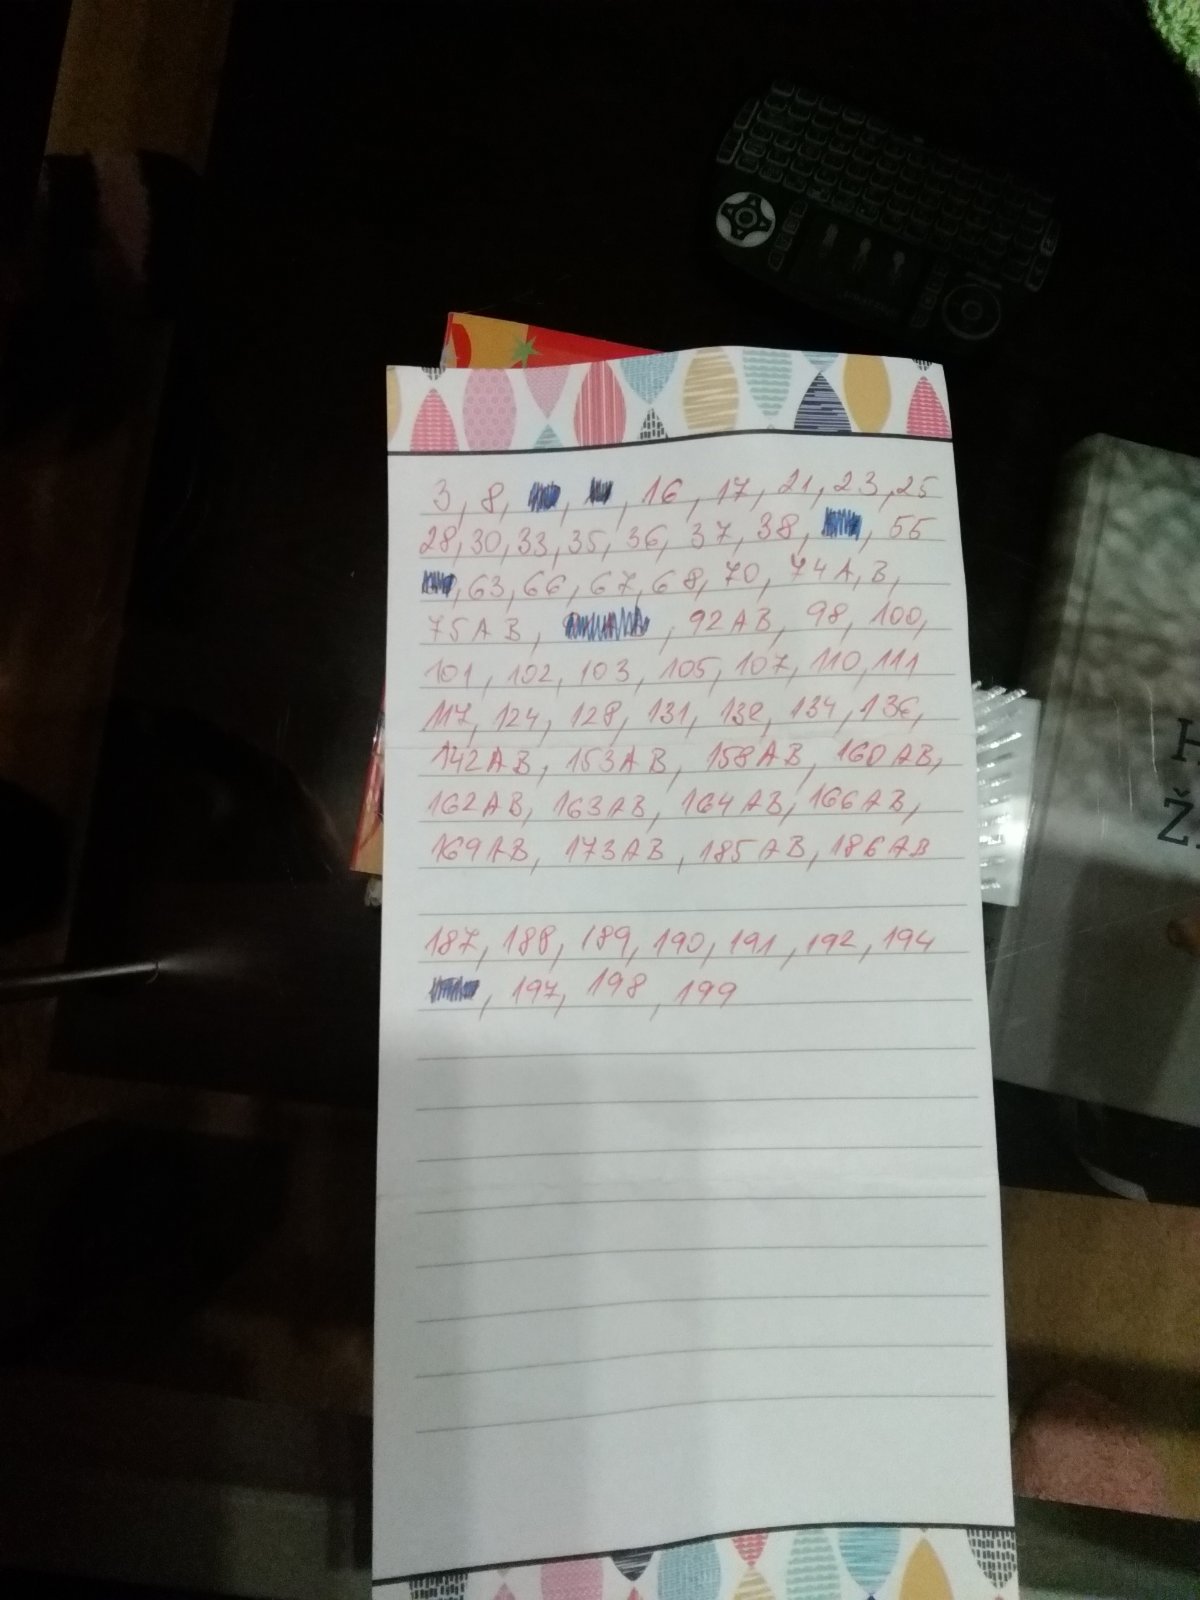 3, 8, , , 16, 17, 21, 23, 25
28, 30, 33, 35, 36, 37, 38, , 55
, 63, 66, 67, 68, 70, 74A, B,
75AB, , 92AB, 98, 100,
101, 102, 103, 105, 107, 110, 111
117, 124, 128, 131, 132, 134, 136,
142AB, 153AB, 158AB, 160AB,
162AB, 163AB, 164AB, 166AB,
169AB, 173AB, 185AB, 186AB
187, 188, 189, 190, 191, 192, 194
, 197, 198, 199
H
Ž